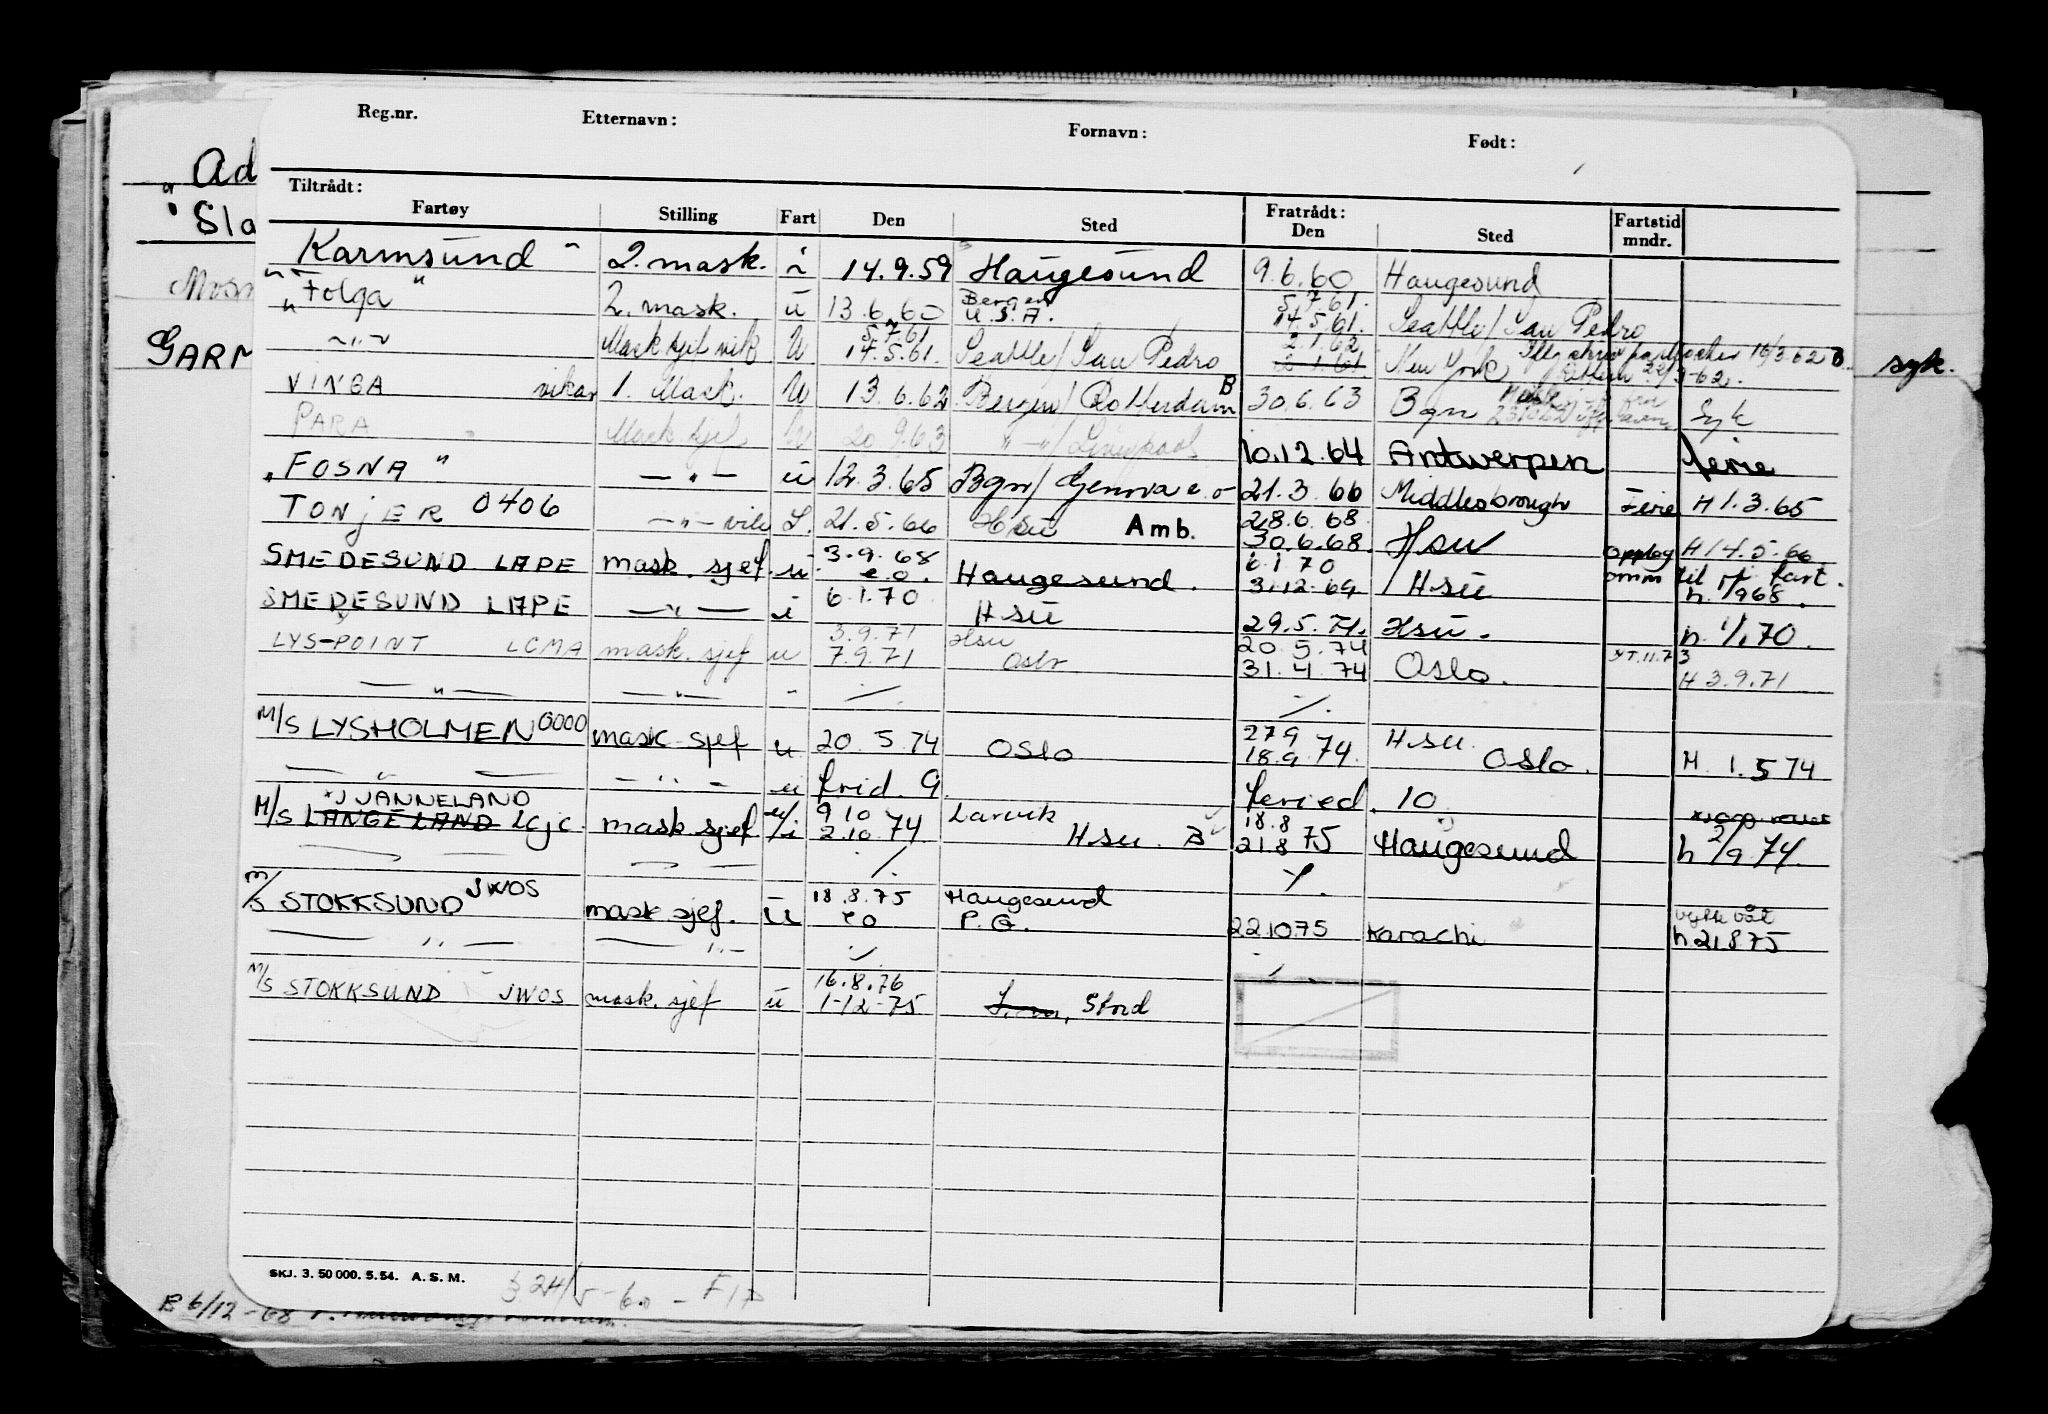 Reg.nr. Etternavn: Fornavn: Født:
Tiltrådt: Fratrådt:
Fartøy Stilling Fart Den Sted Den Sted Fartstid mndr.
Ad
Sla
GARM
Karmsund 2. mask. i 14.9.59 Haugesund 9.6.60 Haugesund
" Folga " 2. mask. u 13.6.60 Bergen U.S.A. 5.7.61. 14.5.61. Seattle/San Pedro
-"- Mask sjef vik U 5.7.61 14.5.61. Seattle/San Pedro 2.1.62 2.1.61. New York 16/3.62 B syk.
VINGA vikar 1. Mask. U 13.6.62 Bergen/Rotterdam B 30.6.63 Bgn Syk
PARA Mask sjef U 20.9.63 -"-/Liverpool 10.12.64 Antwerpen ferie
"FOSNA" -"- u 12.3.65 Bgn/Genova e.o 21.3.66 Middlesbrough Ferie H 1.3.65
TONJER 0406 -"- vik L. 21.5.66 Hsu Amb. 28.6.68 30.6.68. Hsu opplag H 14.5.66
SMEDESUND LAPE mask. sjef. u 3.9.68 e.o. Haugesund. 6.1.70 31.12.69 Hsu omm til u/ fart. h. 1/9 68.
SMEDESUND LAPE -"- i 6.1.70 Hsu 29.5.71. Hsu. h. 1/1.70.
LYS-POINT LCMA mask. sjef u 3.9.71 7.9.71 Hsu Oslo 20.5.74 31.4.74 Oslo. H 3.9.71
-"- -"- - ./. ./.
M/S LYSHOLMEN OOOO mask sjef u 20.5.74 Oslo 27.9 18.9.74. Hsu. Oslo. H. 1.5 74
-"- -"- u frid. 9 feried. 10
M/S LANGELAND JANNELAND LCJC. mask sjef u/i 9 10 2.10.74 Larvik Hsu. B 18.8 21.8 75 Haugesund h 2/9 74.
-"- -"- ./. ./.
M/S STOKKSUND JWOS mask sjef. u 18.8.75 eo Haugesund P.G. 22.10 75 Karachi h 21.8 75
-"- -"- ./. ./.
M/S STOKKSUND JWOS mask. sjef u 16.8.76 1-12-75 Stord
SKJ. 3. 50 000. 5.54. A. S. M.
24/5-60 - FIP
B 6/12-68